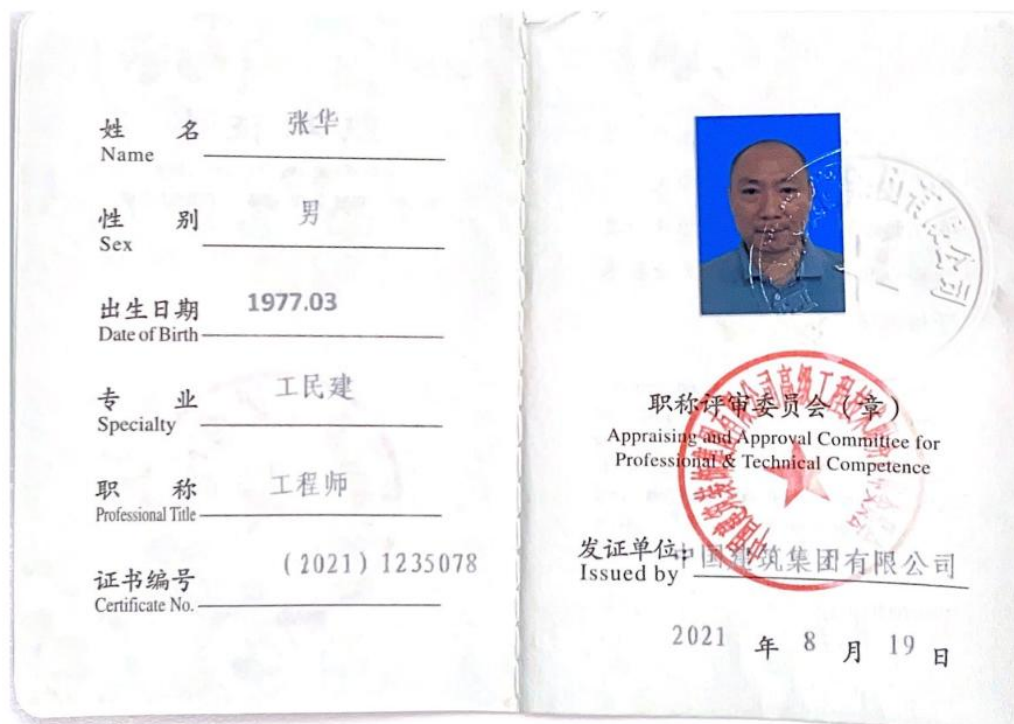 姓 名 张华
Name
性 别 男
Sex
出生日期 1977.03
Date of Birth
专 业 工民建
Specialty
职 称 工程师
Professional Title
证书编号 (2021)1235078
Certificate No.
限公司
职称评审委员会(章)
Appraising and Approval Committee for
Professional & Technical Competence
发证单位: 中国建筑集团有限公司
Issued by
2021 年 8 月 19 日